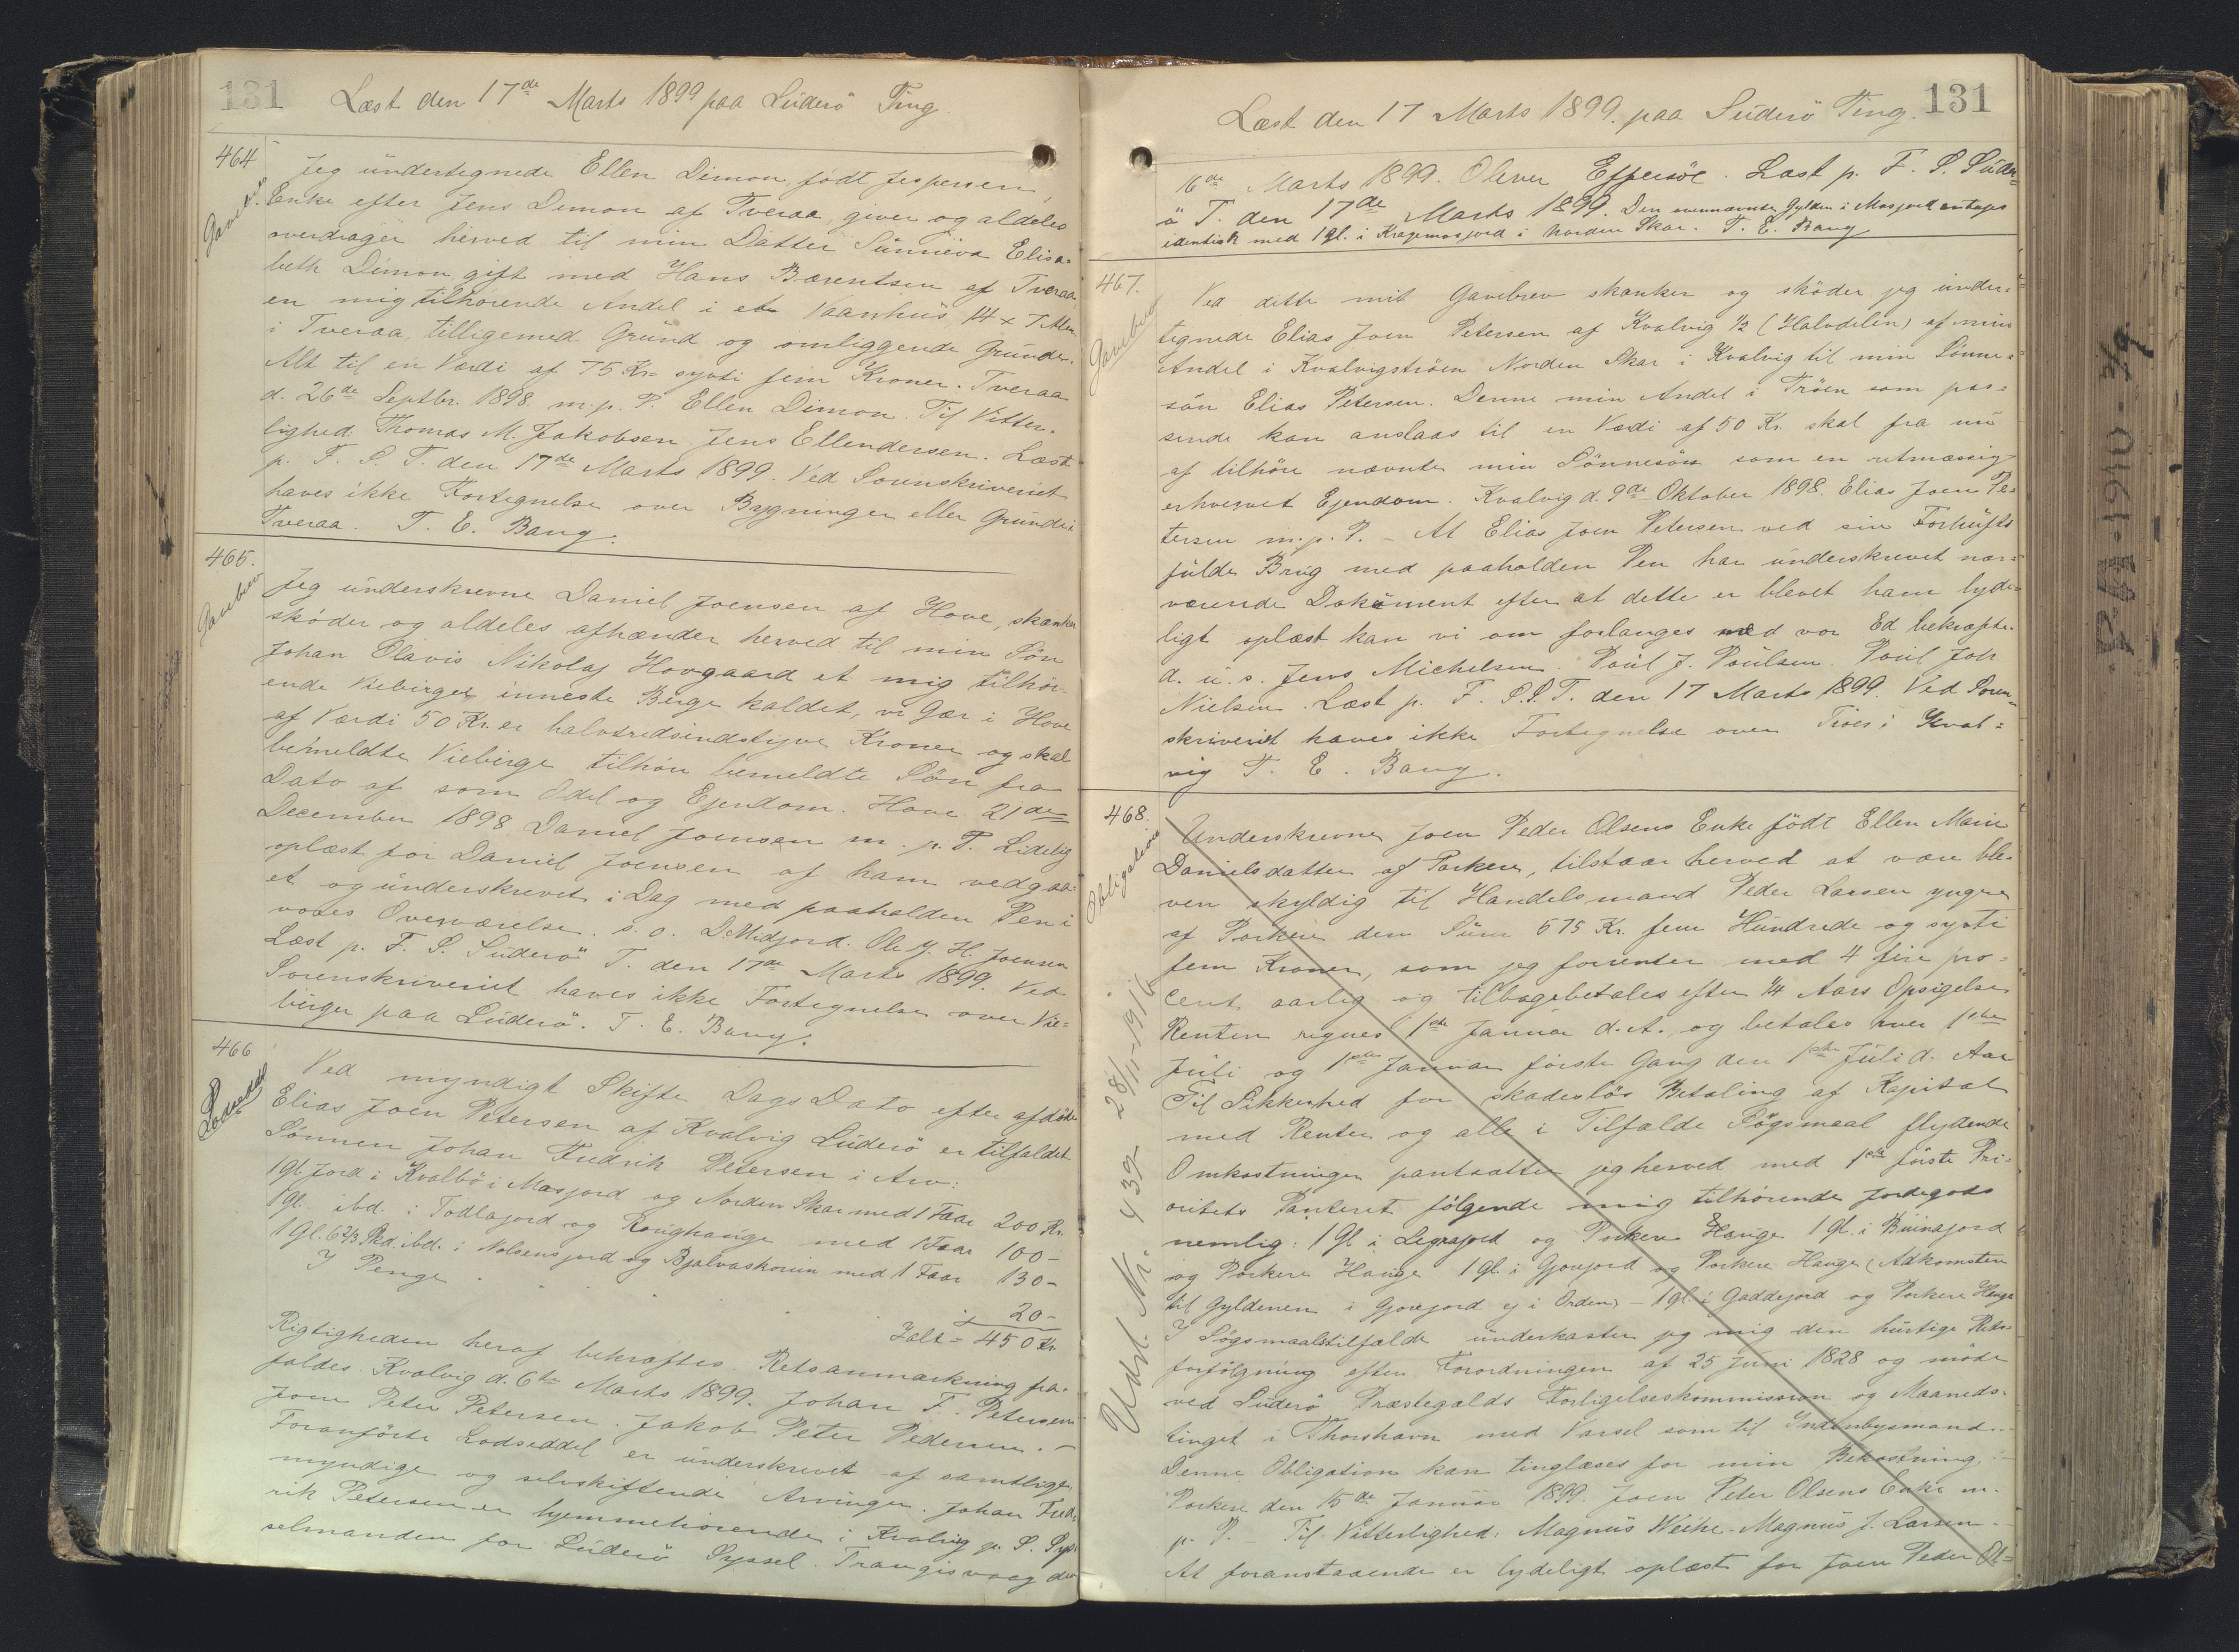 131
Læst den 17de Marts 1899 paa Süderö Ting.
464
Gavebrev.
Jeg undertegnede Ellen Dimon, födt Jespersen,
Enke efter Jens Dimon af Tveraa, giver og aldeles
overdrager herved til min Datter Sünneva Elisa-
beth Dimon gift med Hans Bærentsen af Tveraa,
en mig tilhörende Andel i et Vaanhüs 14 x 7 Alen
i Tveraa, tilligemed Gründ og omliggende Gründe.
Alt til en Værdi af 75 Kr. sytti fem Kroner. Tveraa
d. 26de Septbr. 1898. m. p. P. Ellen Dimon. Til Vitter-
lighed. Thomas M. Jakobsen. Jens Ellendersen. Læst
p. F. S. T. den 17de Marts 1899. Ved Sorenskriveriet
haves ikke Fortegnelse over Bygninger eller Gründe i
Tveraa. T. E. Bang.
465.
Gavebrev
Jeg underskrevne Daniel Joensen af Hove, skænker
sköder og aldeles afhænder herved til min Sön
Johan Olavis Nikolaj Hovgaard et mig tilhör-
ende Viebirge inneste Birge kaldet, vi Gær i Hove
af Værdi 50 Kr. er halvtredsindstyve Kroner og skal
bemeldte Viebirge tilhöre bemeldte Sön fra
Dato af som Odel og Ejendom. Hove 21de
December 1898 Daniel Joensen m. p. P. Lidelig
oplæst for Daniel Joensen af ham vedgaa-
et og ünderskrevet i Dag med paaholden Pen i
vores Overværelse. s. o. D. Midjord. Ole J. H. Joensen
Læst p. F. S. Süderö T. den 17de Marts 1899. Ved
Sorenskriveriet haves ikke Fortegnelse over Vie-
birger paa Süderö. T. E. Bang.
466
Lodseddel
Ved myndigt Skifte Dags Dato efter afdöde
Elias Joen Petersen af Kvalvig Süderö er tilfaldet
Sönnen Johan Fredrik Petersen i Arv:
1 Gl. Jord i Kvalbö i Masjord og Norden Skar med 1 Faar 200 Kr.
1 Gl. ibd. i Todlajord og Roughauge med 1 Faar 100 -
1 Gl. 6 2/3 Skd. ibd. i Nolsensjord og Bjalvaskorum med 1 Faar 130 -
I Penge . . . . 20 -
Ialt = 450 Kr.
Rigtigheden heraf bekræftes. Retsanmærkning fra-
faldes. Kvalvig d. 6te Marts 1899. Johan F. Petersen
Joen Peter Petersen. Jakob Peter Pedersen. -
Foranförte Lodseddel er ünderskrevet af samtlige
myndige og selvskiftende Arvinger. Johan Fred-
rik Petersen er hjemmehörende i Kvalvig p. S. Sys-
selmanden for Süderö Syssel. Trangisvaag den
131
Læst den 17 Marts 1899. paa Süderö Ting.
16de Marts 1899. Oliver Effersöe. Læst p. F. S. Süder-
ö T. den 17de Marts 1899. Den ovennævnte Gylden i Masjord antages
identisk med 1 gl. i Kragemosjord i Norden Skar. T. E. Bang
467.
Gavebrev
Ved dette mit Gavebrev skænker og sköder jeg ünder-
tegnede Elias Joen Petersen af Kvalvig 1/2 (Halvdelen) af min
Andel i Kvalvigströen Norden Skar i Kvalvig til min Sönne-
sön Elias Petersen. Denne min Andel i Tröen som pas-
sende kan anslaas til en Værdi af 50 Kr. skal fra nü
af tilhöre nævnte min Sönnesön som en retmæssig
erhvervet Ejendom. Kvalvig d. 9de Oktober 1898. Elias Joen Pe-
tersen m. p. P. - At Elias Joen Petersen ved sin Fornüfts
fülde Brüg med paaholden Pen har ünderskrevet nær-
værende Doküment efter at dette er blevet ham lyde-
ligt oplæst kan vi om forlanges med vor Ed bekræfte.
d. u. s. Jens Michelsen. Poül J. Poülsen. Poül Joh.
Nielsen. Læst p. F. S. S. T. den 17 Marts 1899. Ved Soren-
skriveriet haves ikke Fortegnelse over Tröer i Kval-
vig T. E. Bang.
468.
Obligation
Underskrevne Joen Peder Olsens Enke födt Ellen Marie
Danielsdatter af Porkere, tilstaar herved at være ble-
ven skyldig til Handelsmand Peder Larsen yngre
af Porkere den Süm 575 Kr. fem Hündrede og sytti
fem Kroner, som jeg forrenter med 4 fire pro-
cent aarlig og tilbagebetales efter 1/4 Aars Opsigelse
Renten regnes 1ste Januar d. A. og betales hver 1ste
Jüli og 1ste Januar förste Gang den 1ste Jüli d. Aar
Til Sikkerhed for skadeslös Betaling af Kapital
med Renter og alle i Tilfælde Sögsmaal flydende
Omkostninger pantsætter jeg herved med 1ste förste Pri-
oritets Panteret fölgende mig tilhörende Jordegods
nemlig: 1 Gl i Legrajord og Porkere Hauge 1 gl. i Büinajord
og Porkere Hauge 1 gl. i Gjovjord og Porkere Hauge (Adkomsten
til Gyldenen i Gjovejord ej i Orden) - 1 gl. i Gaddejord og Porkere Hauge
I Sögsmaalstilfælde ünderkaster jeg mig den hürtige Rets-
forfölgning efter Forordningen af 25 Juni 1828 og möde
ved Süderö Præstegælds Forligelseskommission og Maaneds-
tinget i Thorshavn med Varsel som til Indenbysmand. -
Denne Obligation kan tinglæses for min Bekostning. -
Porkere den 15de Januar 1899. Joen Peter Olsens Enke m.
p. P. - Til Vitterlighed: Magnüs Weihe. Magnüs J. Larsen. -
At foranstaaende er lydeligt oplæst for Joen Peder Ol-
Udsl. Nr. 439 28/11-1916